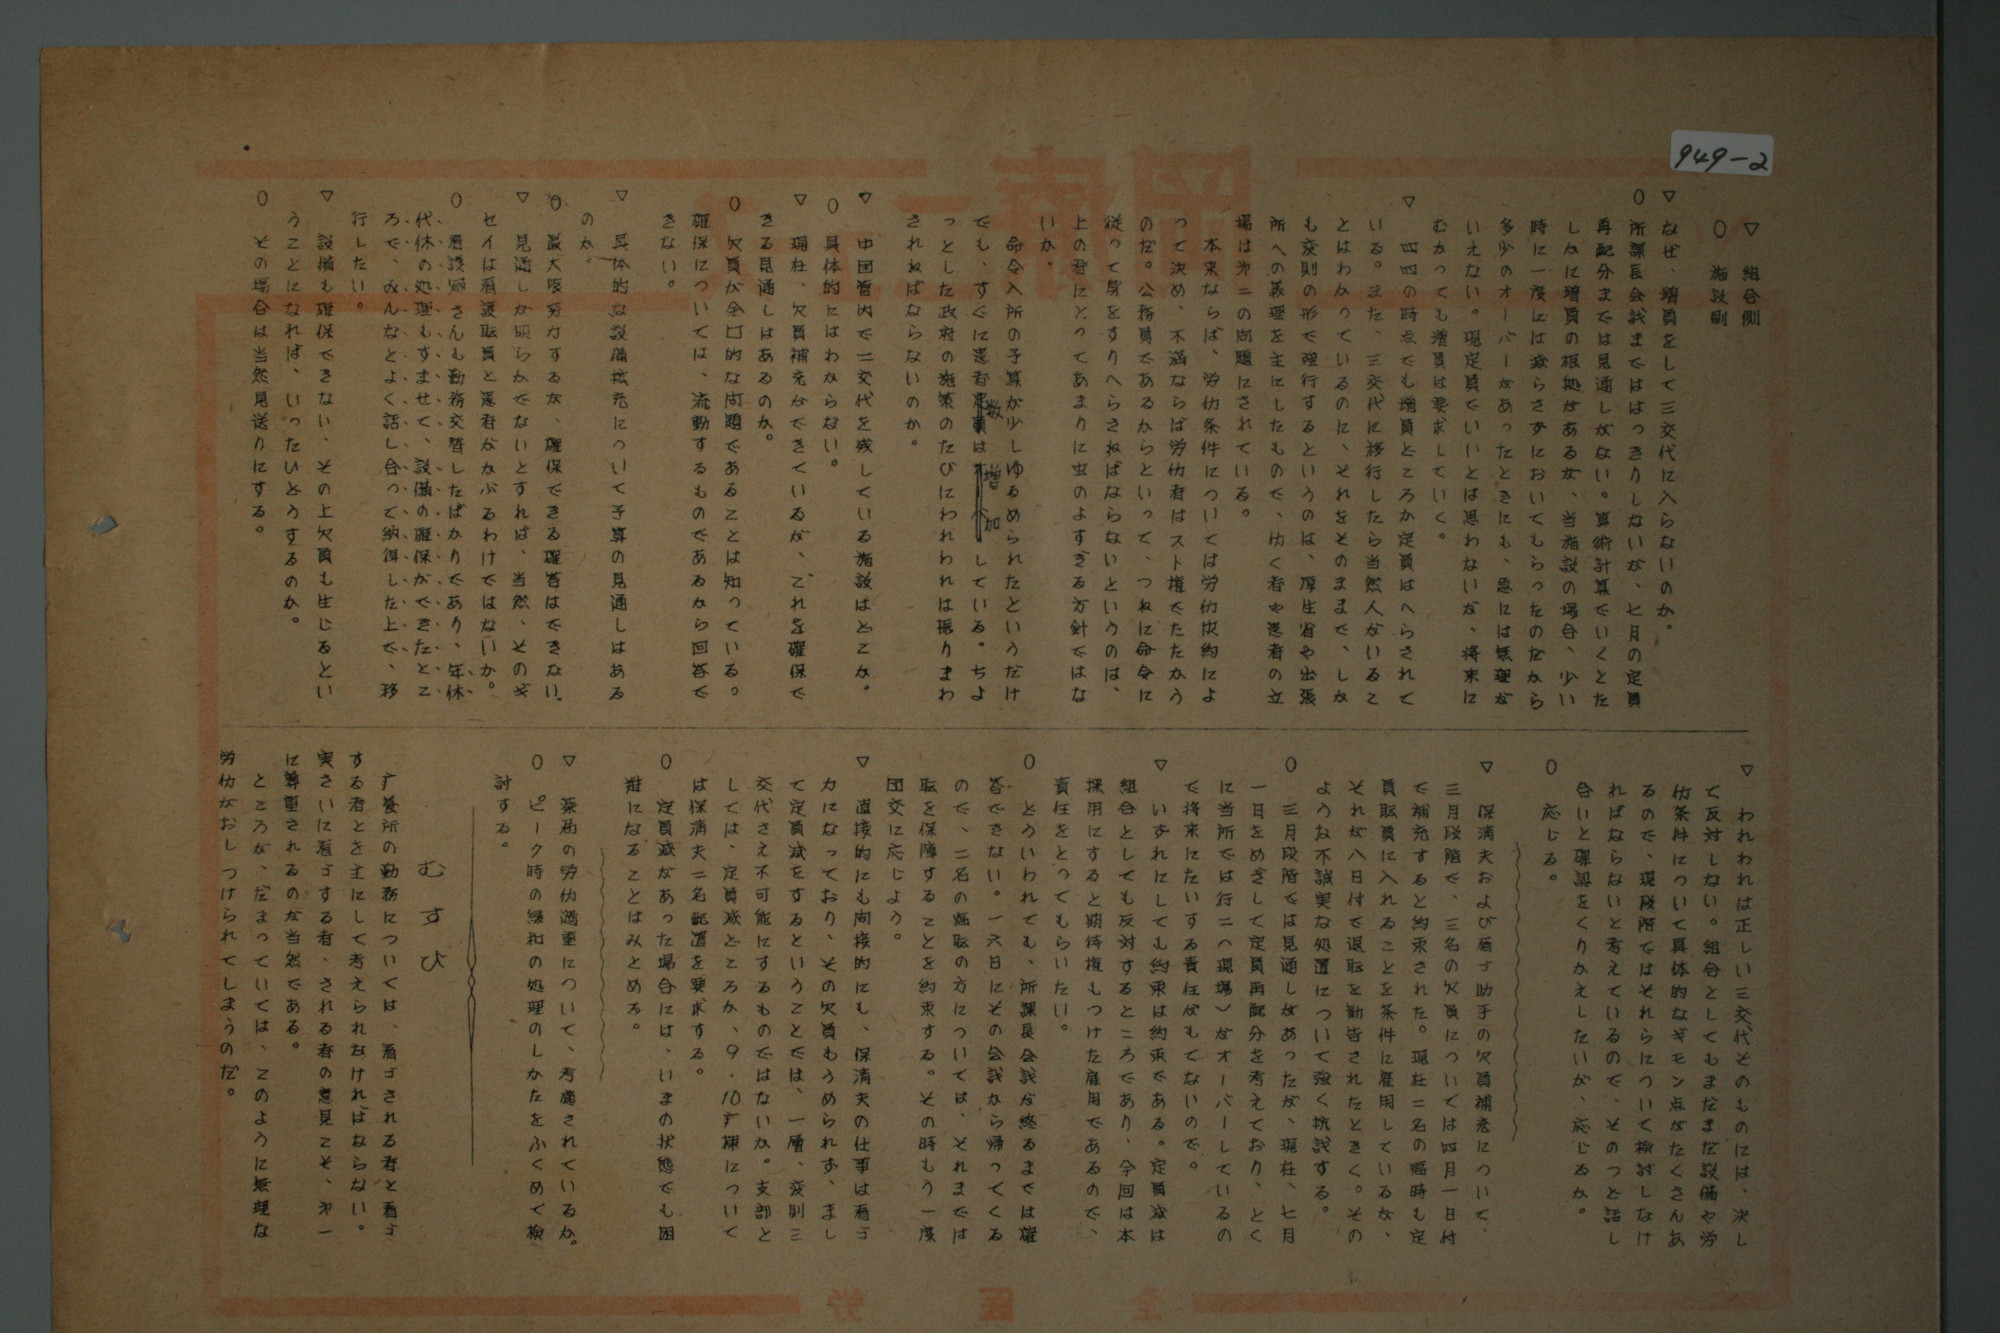 949-2
▽ 組合側
○ 施設側
▽ なぜ、増員をして三交代に入らないのか。
○ 所課長会議まではっきりしないが、七月の定員
再配分までは見通しがない。算術計算でいくとた
しかに増員の根拠がある が、当施設の場合、少い
時に一度には減らさずにおいてもらったのだから
多少のオーバーがあったときにも、急には無理が
いえない。現定員でいいとは思わないが、将来に
むかっても増員は要求していく。
▽ 四四の時点でも増員どころか定員はへらされて
いる。また、三交代に移行したら当然人がいるこ
とはわかっているのに、それをそのままで、しか
も変則の形で強行するというのは、厚生省や出張
所への義理を主にしたもので、仂く者や患者の立
場は㐧二の問題にされている。
本来ならば、労仂条件については労仂協約によ
って決め、不満ならば労仂者はスト権でたたかう
のだ。公務員であるからといって、つねに命令に
従って身をすりへらさねばならないというのは、
上の者にとってあまりに虫のよすぎる方針ではな
いか。
命令入所の予算が少しゆるめられたというだけ
でも、すぐに患者数は増加している。ちょ
っとした政府の施策のたびにわれわれは振りまわ
されねばならないのか。
▽ 中国管内で二交代を残している施設はどこか。
○ 具体的にはわからない。
▽ 現在、欠員補充ができているが、これを確保で
きる見通しはあるのか。
○ 欠員が全国的な問題であることは知っている。
確保については、流動するものであるから回答で
きない。
▽ 具体的な設備拡充について予算の見通しはある
のか。
○ 最大限努力するが、確保できる確答はできない。
▽ 見通しが明らかでないとすれば、当然、そのギ
セイは看護職員と患者がかぶるわけではないか。
○ 看護婦さんも勤務交替したばかりであり、年休
代休の処理もすませて、設備の確保ができたとこ
ろで、みんなとよく話し合って納得した上で、移
行したい。
▽ 設備も確保できない、その上欠員も生じるとい
うことになれば、いったいどうするのか。
○ その場合は当然見送りにする。
▽ われわれは正しい三交代そのものには、決し
て反対しない。組合としてもまだまだ設備や労
仂条件について具体的なギモン点がたくさんあ
るので、現段階ではそれらについて検討しなけ
ればならないと考えているので、そのつど話し
合いと確認をくりかえしたいが、応じるか。
○ 応じる。
▽ 保清夫および看ゴ助手の欠員補充について、
三月段階で、三名の欠員については四月一日付
で補充すると約束された。現在二名の臨時も定
員職員に入れることを条件に雇用しているが、
それが八日付で退職を勧告されたときく。その
ような不誠実な処置について強く抗議する。
○ 三月段階では見通しがあったが、現在、七月
一日をめざして定員再配分を考えており、とく
に当所では行二(現場)がオーバーしているの
で将来にたいする責任がもてないので。
▽ いずれにしても約束は約束である。定員減は
組合としても反対するところであり、今回は本
採用にすると期待権もつけた雇用であるので、
責任をとってもらいたい。
○ どういわれても、所課長会議が終るまでは確
答できない。一六日にその会議から帰ってくる
ので、二名の臨職の方については、それまでは
職を保障することを約束する。その時もう一度
団交に応じよう。
▽ 直接的にも間接的にも、保清夫の仕事は看ゴ
力になっており、その欠員もうめられず、まし
て定員減をするということでは、一層、変則三
交代さえ不可能にするものではないか。支部と
しては、定員減どころか、9・10疒棟について
は保清夫二名配置を要求する。
○ 定員減があった場合には、いまの状態でも困
難になることはみとめる。
▽ 薬局の労仂過重について、考慮されているか。
○ ピーク時の緩和の処理のしかたをふくめて検
討する。
むすび
疒養所の勤務については、看ゴされる者と看ゴ
する者とを主にして考えられなければならない。
実さいに看ゴする者、される者の意見こそ、㐧一
に尊重されるのが当然である。
ところが、だまっていては、このように無理な
労仂がおしつけられてしまうのだ。
全医労